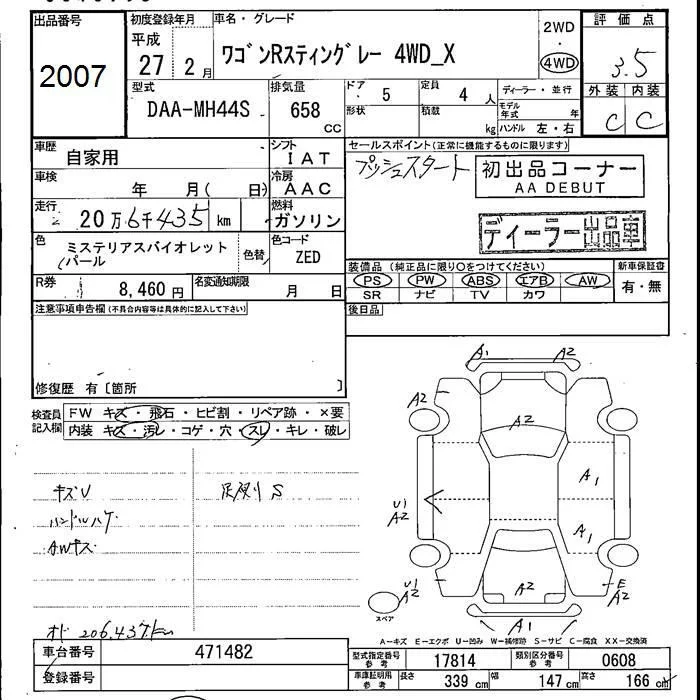 出品番号
2007
初度登録年月
平成
27年 2月
車名・グレード
ワゴンRスティングレー 4WD_X
2WD
・
4WD
評価点
3.5
外装 内装
C C
型式
DAA-MH44S
排気量
658
cc
ドア
5
形状
定員
4 人
積載
kg
ディーラー・並行
モデル年式 年
ハンドル 左・右
車歴
自家用
シフト
IAT
車検
年 月( 日)
冷房
AAC
走行
20万6千435 km
燃料
ガソリン
色
ミステリアスバイオレット
パール
色替
色コード
ZED
R券
8,460円
名変通知期限
月 日
セールスポイント(正常に機能するものに限ります)
プッシュスタート
初出品コーナー
AA DEBUT
ディーラー出品車
装備品(純正品に限り○をつけてください)
新車保証書
PS PW ABS エアB AW
SR ナビ TV カワ
有・無
後日品
注意事項申告欄(不具合内容等は具体的に記入して下さい)
修復歴 有〔箇所 〕
検査員
記入欄
FW キズ・飛石・ヒビ割・リペア跡・×要
内装 キズ・汚レ・コゲ・穴・スレ・キレ・破レ
キズU
ハンドルハゲ
AWキズ
足廻りS
オド 206,437km
A1 A2
A2
A2
A1
U1
A2
A1
U1
A2
A2
E
A2
A1
スペア
A-キズ E-エクボ U-凹み W-補修跡 S-サビ C-腐食 XX-交換済
車台番号
471482
登録番号
型式指定番号
参考
17814
類別区分番号
参考
0608
車庫証明用
参考
長さ 339cm 幅 147cm 高さ 166cm